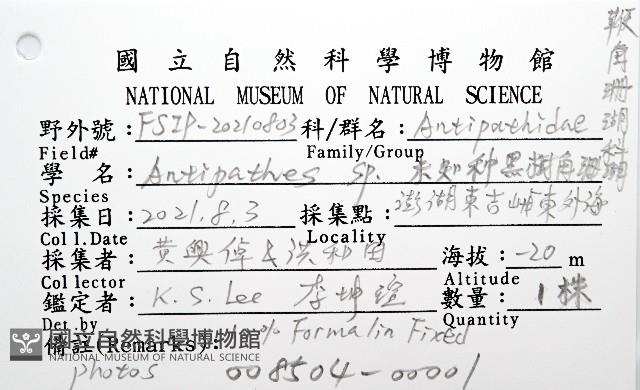 國立自然科學博物館
NATIONAL MUSEUM OF NATURAL SCIENCE
野外號：FSIP-20210803 科/群名：Antipathidae
Field# Family/Group
學名：Antipathes sp. 未知種黑樹角珊瑚
Species
採集日：2021.8.3 採集點：澎湖東吉嶼東外海
Coll.Date Locality
採集者：黃興倬 & 洪和田 海拔：-20 m
Collector Altitude
鑑定者：K.S. Lee 李坤瑄 數量：1株
Det.by Quantity
備註(Remarks): % Formalin Fixed
photos 008504-00001
鞭角珊瑚科
國立自然科學博物館
NATIONAL MUSEUM OF NATURAL SCIENCE